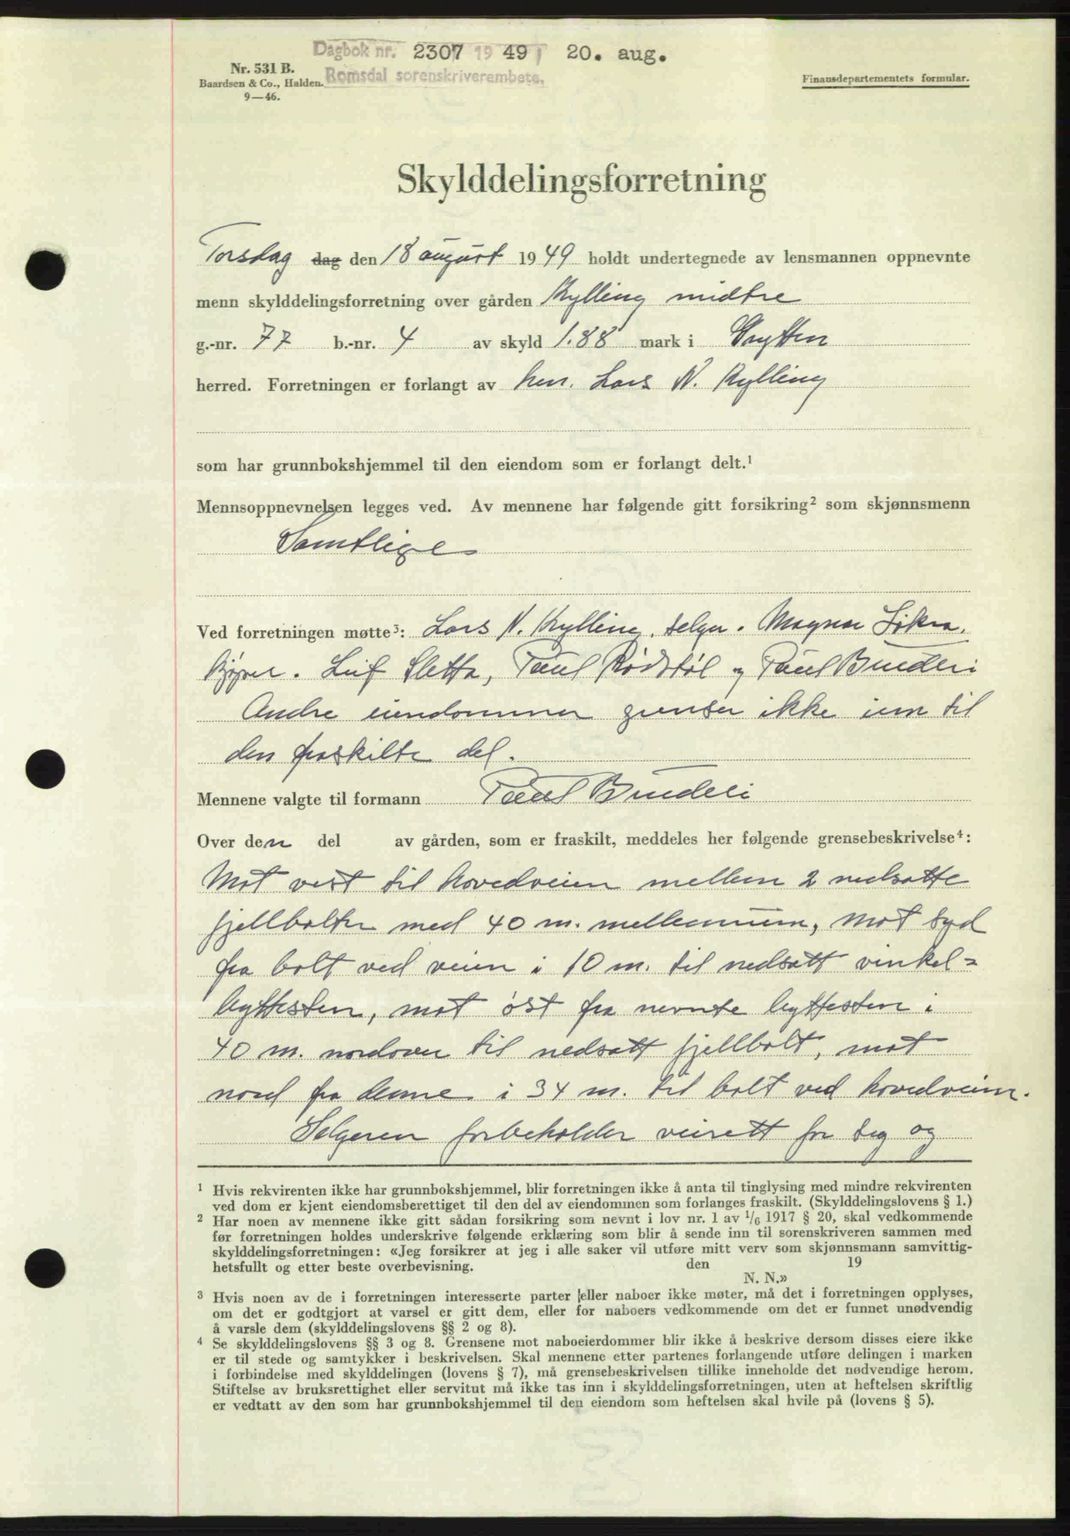 Dagbok nr. 2307 1949 20. aug.
Romsdal sorenskriverembete.
Nr. 531 B.
Baardsen & Co., Halden.
9—46.
Finansdepartementets formular.
Skylddelingsforretning
Torsdag dag den 18 august 1949 holdt undertegnede av lensmannen oppnevnte
menn skylddelingsforretning over gården Kylling midtre
g.-nr. 77 b.-nr. 4 av skyld 1.88 mark i Grytten
herred. Forretningen er forlangt av hrr. Lars N. Kylling
som har grunnbokshjemmel til den eiendom som er forlangt delt.¹
Mennsoppnevnelsen legges ved. Av mennene har følgende gitt forsikring² som skjønnsmenn
Samtlige
Ved forretningen møtte³: Lars N. Kylling, selger. Magnar
kjøper. Leif Sletta, Paul Rødstøl og Paul Brudeli
Andre eiendommer grenser ikke inn til
den fraskilte del.
Mennene valgte til formann Paul Brudeli
Over den del av gården, som er fraskilt, meddeles her følgende grensebeskrivelse⁴:
Mot vest til hovedveien mellem 2 nedsatte
fjellbolter med 40 m. mellemrum, mot syd
fra bolt ved veien i 10 m. til nedsatt vinkel=
byttesten, mot øst fra nevnte byttesten i
40 m. nordover til nedsatt fjellbolt, mot
nord fra denne i 34 m. til bolt ved hovedveien.
Selgeren forbeholder veirett for seg og
¹ Hvis rekvirenten ikke har grunnbokshjemmel, blir forretningen ikke å anta til tinglysing med mindre rekvirenten
ved dom er kjent eiendomsberettiget til den del av eiendommen som forlanges fraskilt. (Skylddelingslovens § 1.)
² Har noen av mennene ikke gitt sådan forsikring som nevnt i lov nr. 1 av 1/6 1917 § 20, skal vedkommende
før forretningen holdes underskrive følgende erklæring som blir å sende inn til sorenskriveren sammen med
skylddelingsforretningen: «Jeg forsikrer at jeg i alle saker vil utføre mitt verv som skjønnsmann samvittig-
hetsfullt og etter beste overbevisning. den 19
N. N.»
³ Hvis noen av de i forretningen interesserte parter eller naboer ikke møter, må det i forretningen opplyses,
om det er godtgjort at varsel er gitt dem, eller for naboers vedkommende om det er funnet unødvendig
å varsle dem (skylddelingslovens §§ 2 og 8).
⁴ Se skylddelingslovens §§ 3 og 8. Grensene mot naboeierdommer blir ikke å beskrive dersom disses eiere ikke
er til stede og samtykker i beskrivelsen. Skal mennene etter partenes forlangende utføre delingen i marken
i forbindelse med skylddelingen (lovens § 7), må grensebeskrivelsen tillike inneholde det nødvendige herom.
Stiftelse av bruksrettighet eller servitut må ikke tas inn i skylddelingsforretningen, uten at heftelsen skriftlig
er vedtatt av den som har grunnbokshjemmel til den eiendom som heftelsen skal hvile på (lovens § 5).